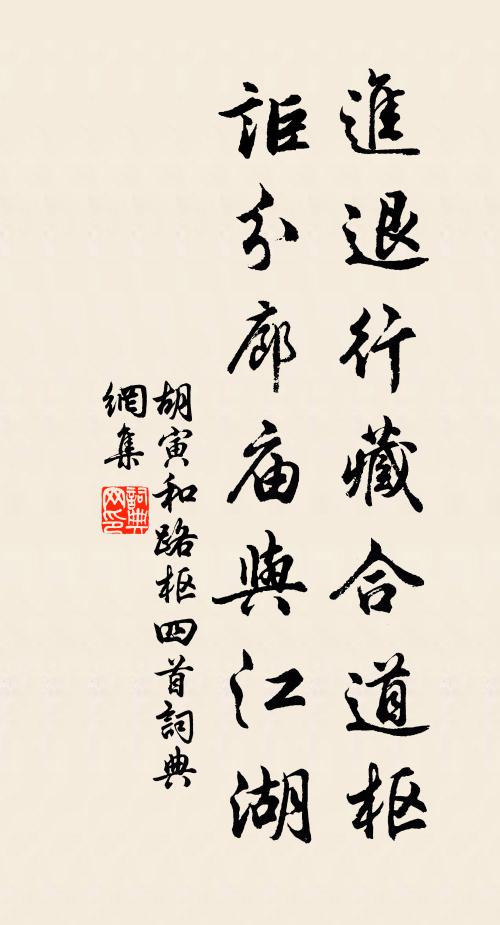 進退行藏合道枢
詎分廊庙與江湖
胡寅和路枢四首詞典
網集
詞典
网印